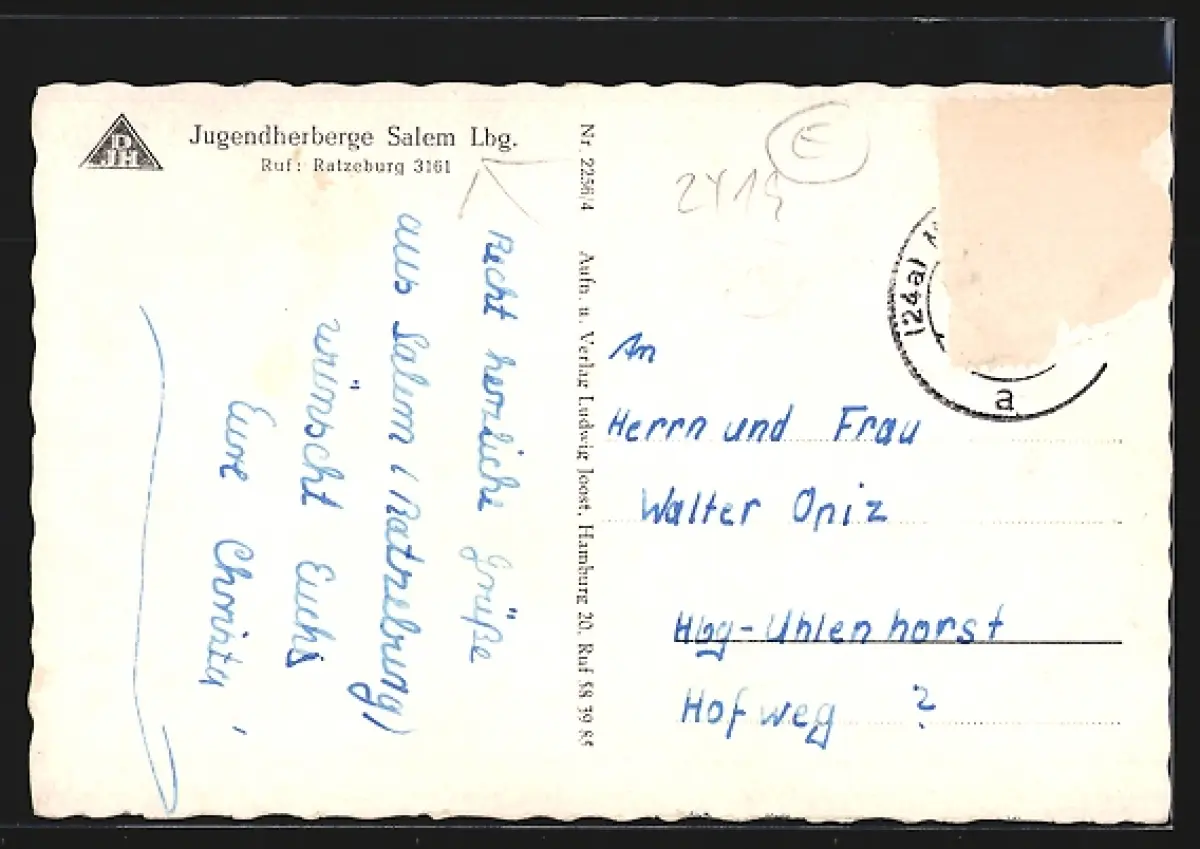 DJH
Jugendherberge Salem Lbg.
Ruf: Ratzeburg 3161
Recht herzliche Grüße
aus Salem (Ratzeburg)
wünscht Euch
Eure
Nr. 2256/4 Aufn. u. Verlag Ludwig Joost, Hamburg 20, Ruf 58 39 85
E
(24a)
a
An
Herrn und Frau
Walter Opiz
Hbg-Uhlenhorst
Hofweg ?